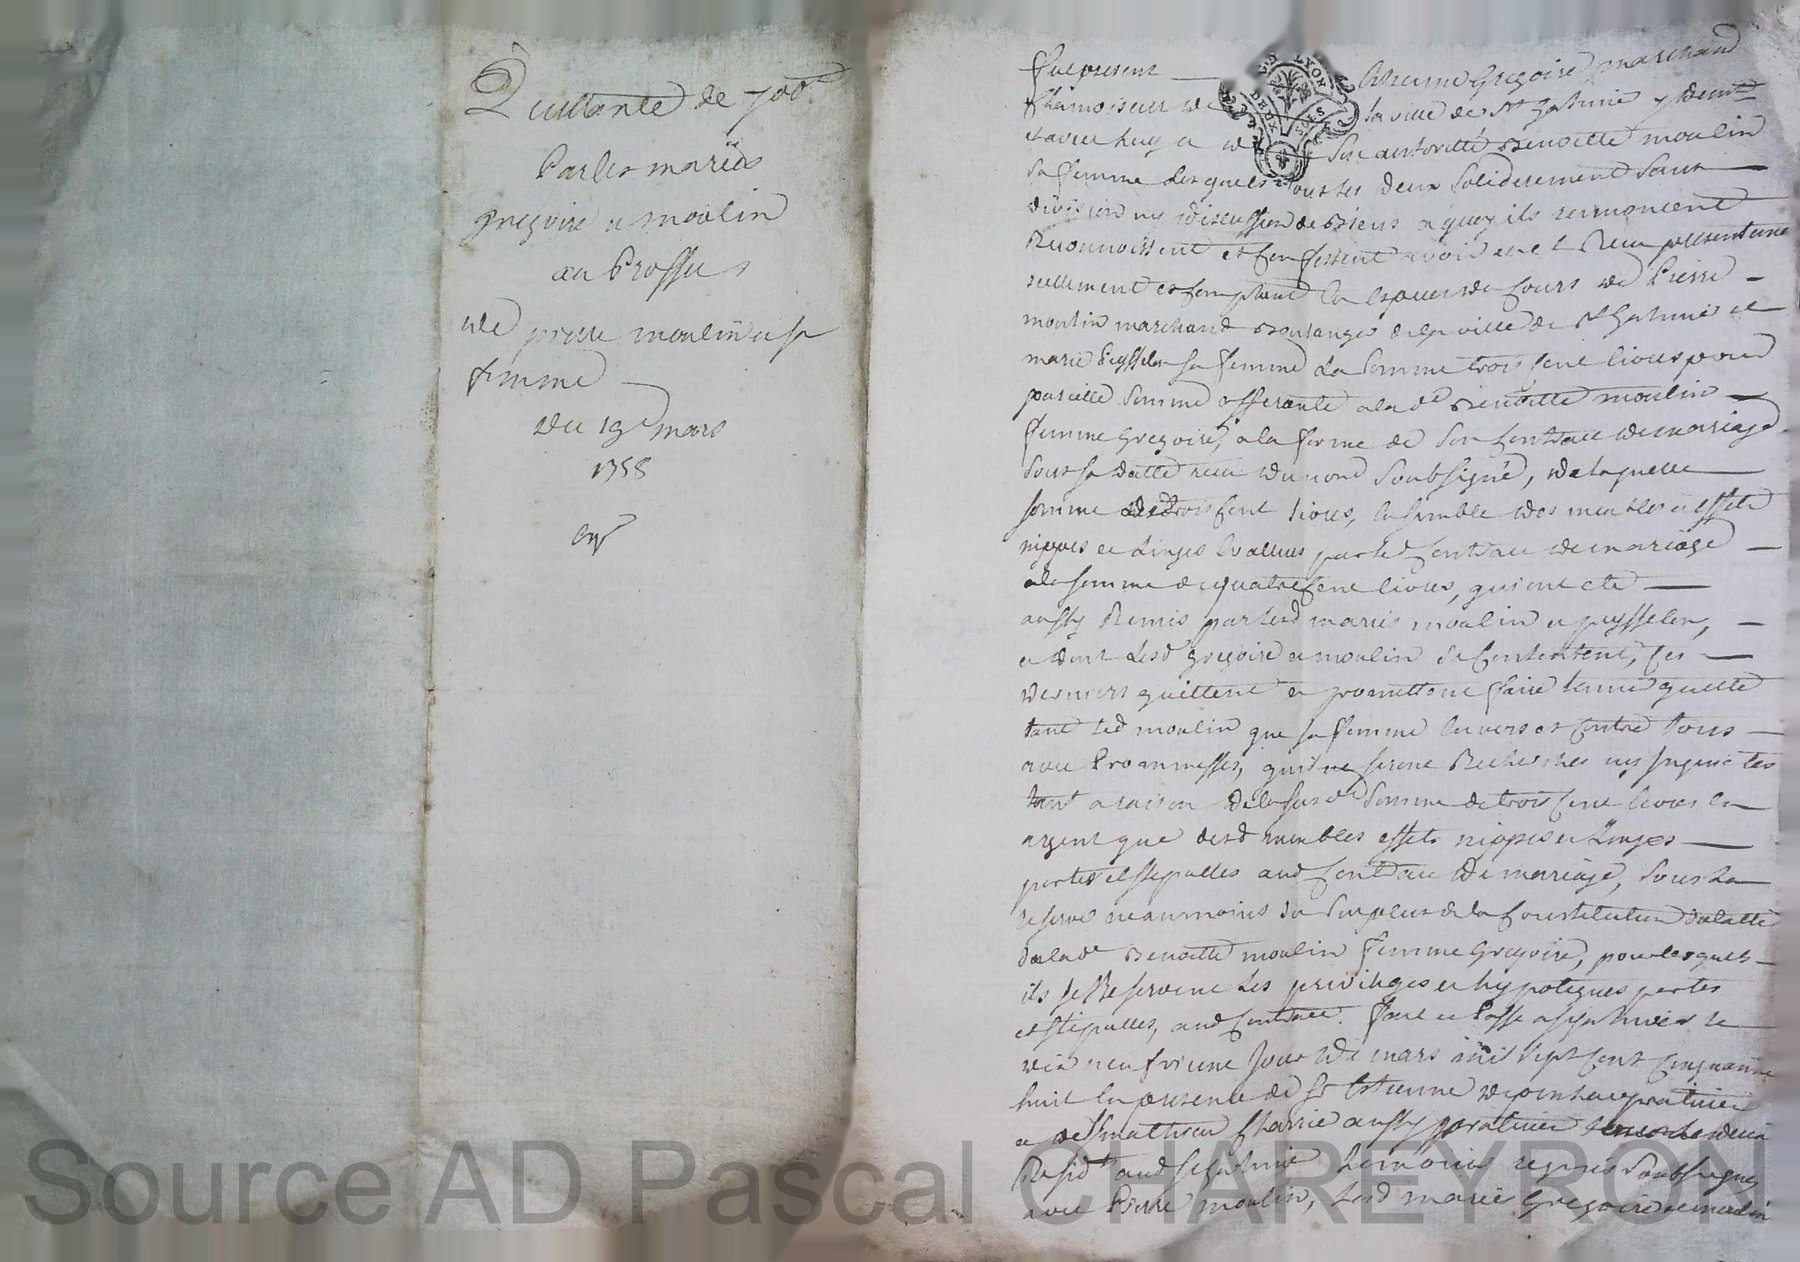 Quittance de 700#
Par les mariés
gregoire et moulin
au Proffit
de pierre moulin et sa
femme
du 19e mars
1758
Fut present Estienne Gregoire marchand
Chamoiseur de la ville de St Galmier y demt
et avec luy et de son authorité Benoitte moulin
sa femme lesquels tous les deux solidairement sans
division ny discussion de biens a quoy ils renoncent
Reconnoissent et confessent avoir eue et Receu presentement
reellement et comptant en espece de cours de Pierre
moulin marchand Boulanger de la ville de St Galmier et
marie peysselon sa femme la somme trois cent livres pour
pareille somme afferante a lad e Benoitte moulin
femme Gregoire, a la forme de son contract de mariage
sous sa datte receu du no re soubsigné, de laquelle
somme de trois cent livres, ensemble des meubles et effets
nippes et Linges Evalues par led contract de mariage
a la somme de quatre cent livres, qui ont eté
aussy Remis par lesd mariés moulin et peysselon,
et dont lesd gregoire et moulin se contentent, ces
derniers quittent et promettent faire tenir quitte
tant led moulin que sa femme Envers et Contre tous
avec Prommesses, qu'il ne seront Recherchés ny Inquietés
tant a raison de la susd e somme de trois cent livres en
argent que desd meubles effets nippes et Linges
portés et stipulles aud Contract de mariage, sous la
reserve neanmoins du surplus de la Constitution
de lad e Benoitte moulin femme Gregoire, pour lesquels
ils se Reservent les privileges et hypoteques portés
et stipulles, aud Contract. fait et Passé a St Galmier le
dix neufvieme Jour de mars mil sept cent cinquante
huit En presence de Sr Estienne depoinhac praticien
et de mathieu Charrié aussy praticien
Resid t aud St Galmier temoins requis soubsignes
avec Pierre moulin, lesd mariés Gregoire et moulin
Source AD Pascal CHAREYRON